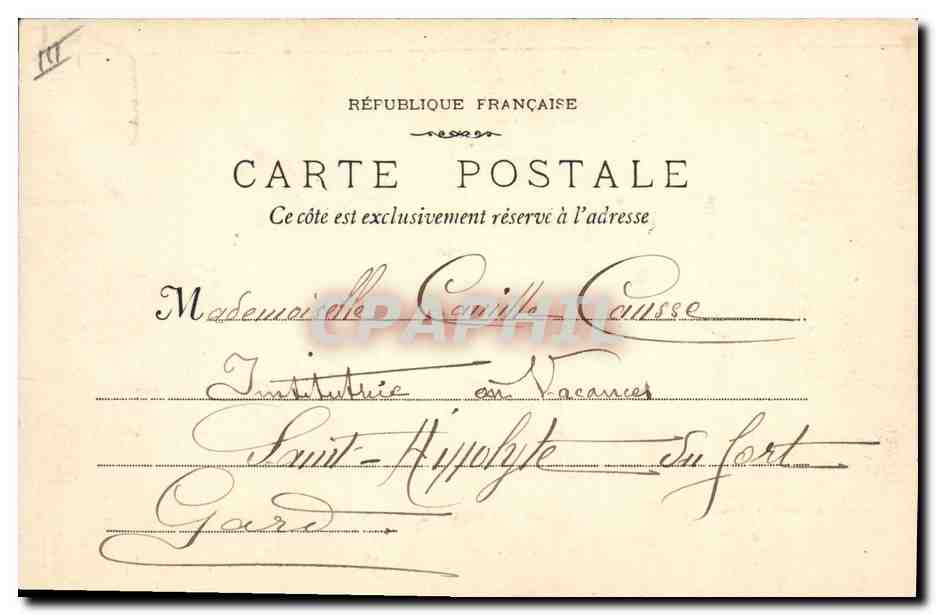 III
RÉPUBLIQUE FRANÇAISE
CARTE POSTALE
Ce côté est exclusivement réservé à l'adresse
Mademoiselle Camille Causse
CPAPHIL
Institutrice en Vacances
Saint-Hippolyte du fort
Gard